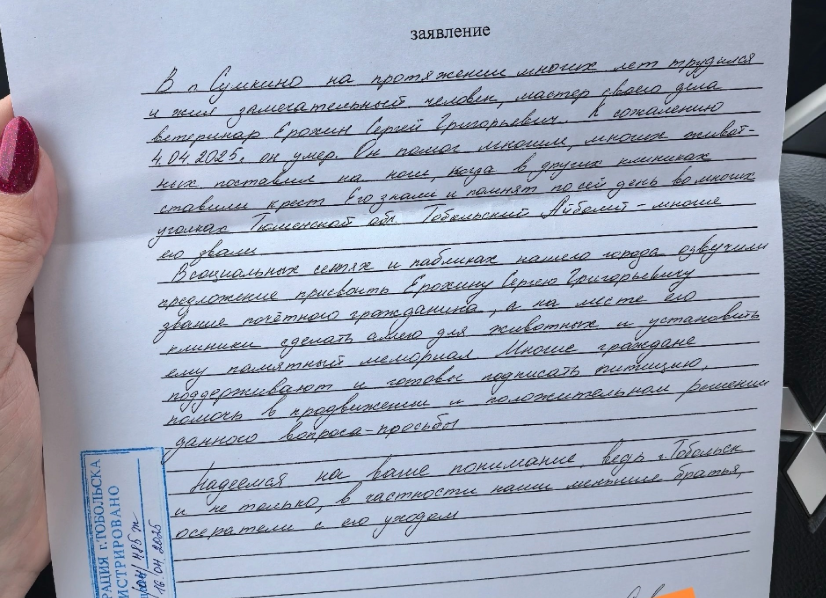 заявление
В п Сумкино на протяжении многих лет трудился
и жил замечательный человек, мастер своего дела
ветеринар Ерохин Сергей Григорьевич. К сожалению
4.04.2025г он умер. Он помог многим, многих живот-
ных поставил на ноги, когда в других клиниках
ставили крест Его знали и помнят по сей день во многих
уголках Тюменской обл. Тобольский Айболит - многие
его звали
В социальных сетях и пабликах нашего города озвучили
предложение присвоить Ерохину Сергею Григорьевичу
звание почётного гражданина, а на месте его
клиники сделать аллею для животных и установить
ему памятный мемориал Многие граждане
поддерживают и готовы подписать питицию,
помочь в продвижении и положительном решении
данного вопроса-просьбы
Надеемся на ваше понимание, ведь г. Тобольск
и не только, в частности наши меньшие братья,
осератели с его уходом
РАЦИЯ г.ТОБОЛЬСКА
ИСТРИРОВАНО
16.04.2025